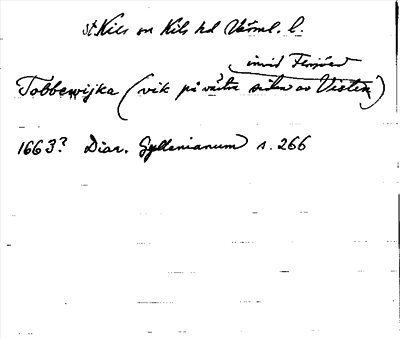 St. Kils sn Kils hd Värml. l.
invid Fersöed
Tobbewijka (vik på västra sidan av Visten)
1663? Diar. Gyllenianum s. 266